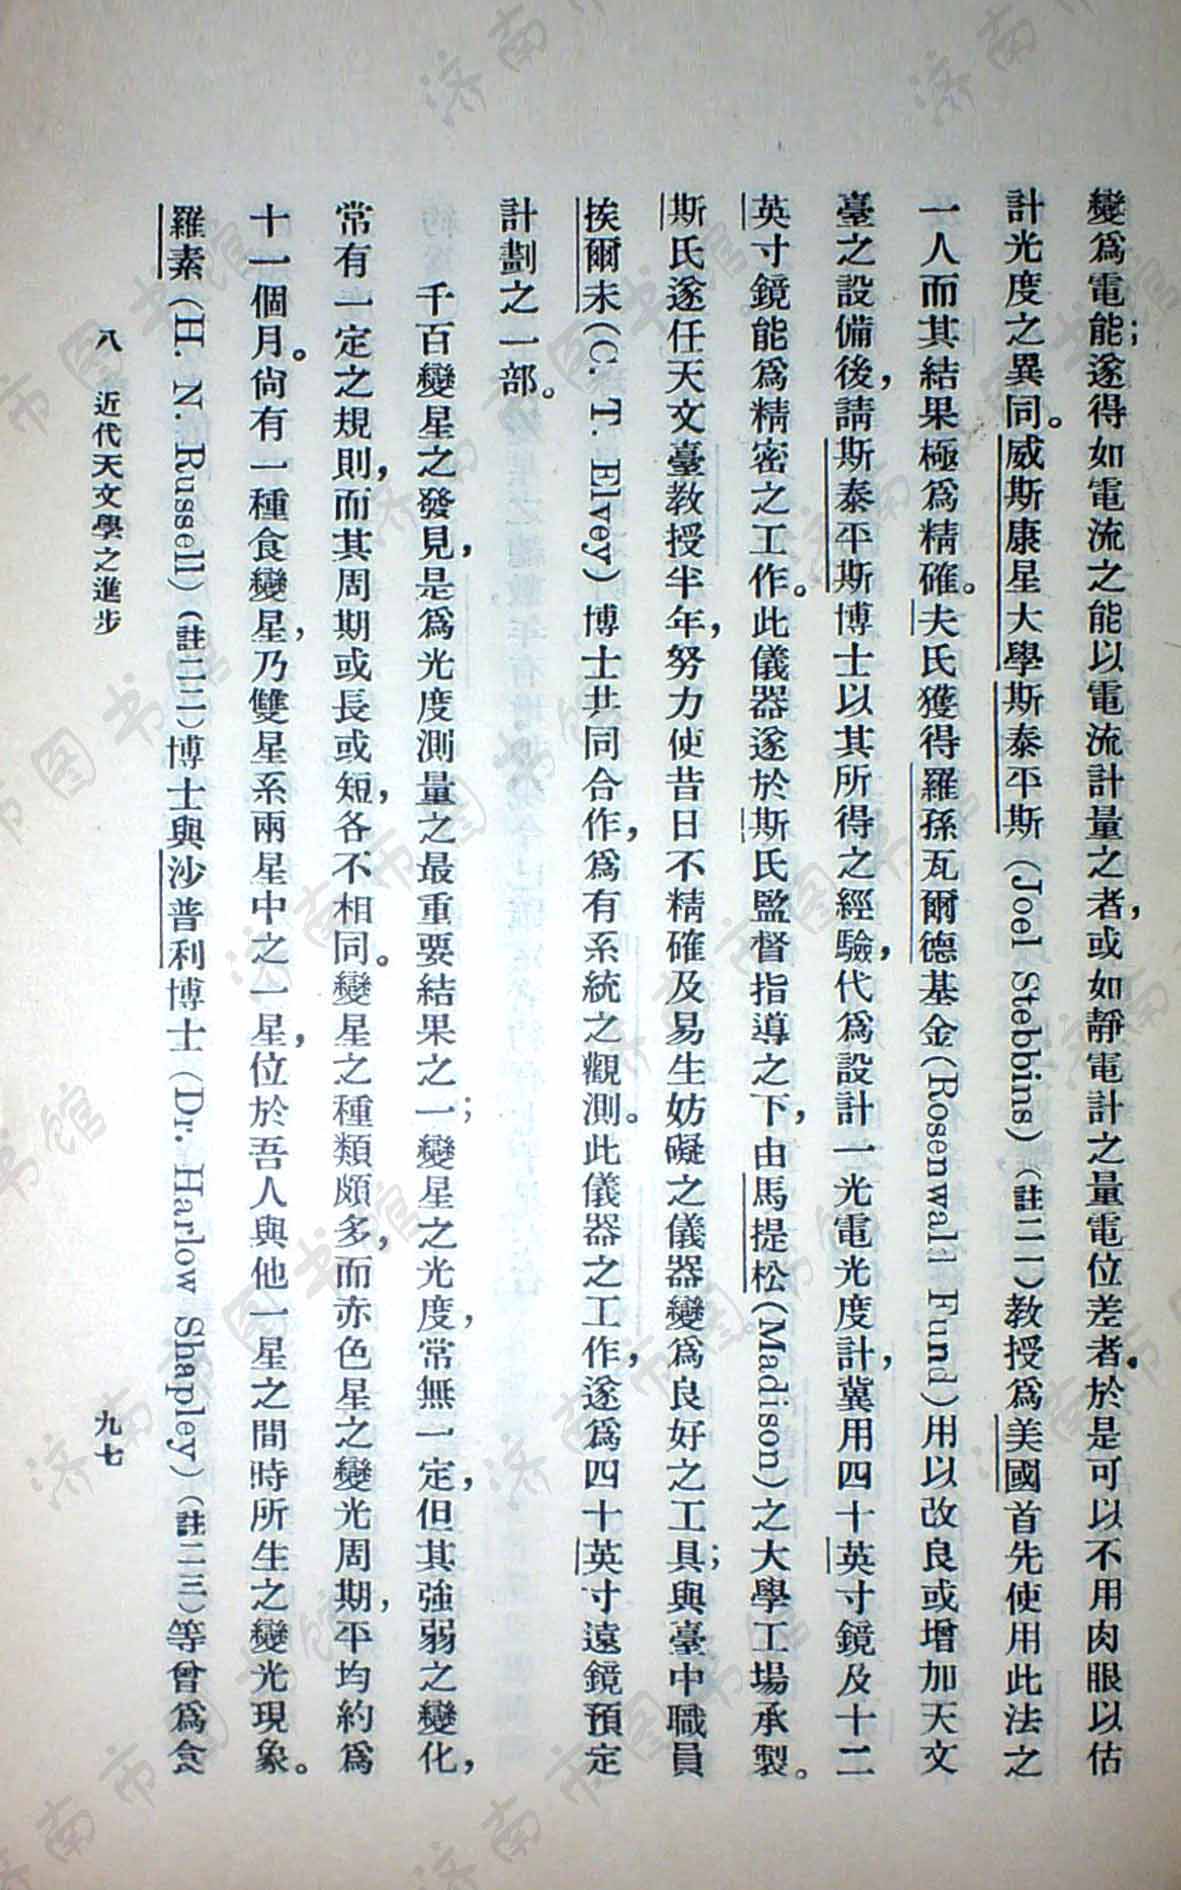 變爲電能；遂得如電流之能以電流計量之者，或如靜電計之量電位差者。於是可以不用肉眼以估
計光度之異同。威斯康星大學斯泰平斯（Joel Stebbins）（註二一）教授爲美國首先使用此法之
一人而其結果極爲精確。夫氏獲得羅孫瓦爾德基金（Rosenwald Fund）用以改良或增加天文
臺之設備後，請斯泰平斯博士以其所得之經驗，代爲設計一光電光度計，冀用四十英寸鏡及十二
英寸鏡能爲精密之工作。此儀器遂於斯氏監督指導之下，由馬提松（Madison）之大學工場承製。
斯氏遂任天文臺教授半年，努力使昔日不精確及易生妨礙之儀器變爲良好之工具；與臺中職員
挨爾未（C. T. Elvey）博士共同合作，爲有系統之觀測。此儀器之工作，遂爲四十英寸遠鏡預定
計劃之一部。
千百變星之發見，是爲光度測量之最重要結果之一；變星之光度，常無一定，但其強弱之變化，
常有一定之規則，而其周期或長或短，各不相同。變星之種類頗多，而亦色星之變光周期，平均約爲
十一個月。尙有一種食變星，乃雙星系兩星中之一星，位於吾人與他一星之間時所生之變光現象。
羅素（H. N. Russell）（註二二）博士與沙普利博士（Dr. Harlow Shapley）（註二三）等曾爲食
八 近代天文學之進步
九七
济南市图书馆